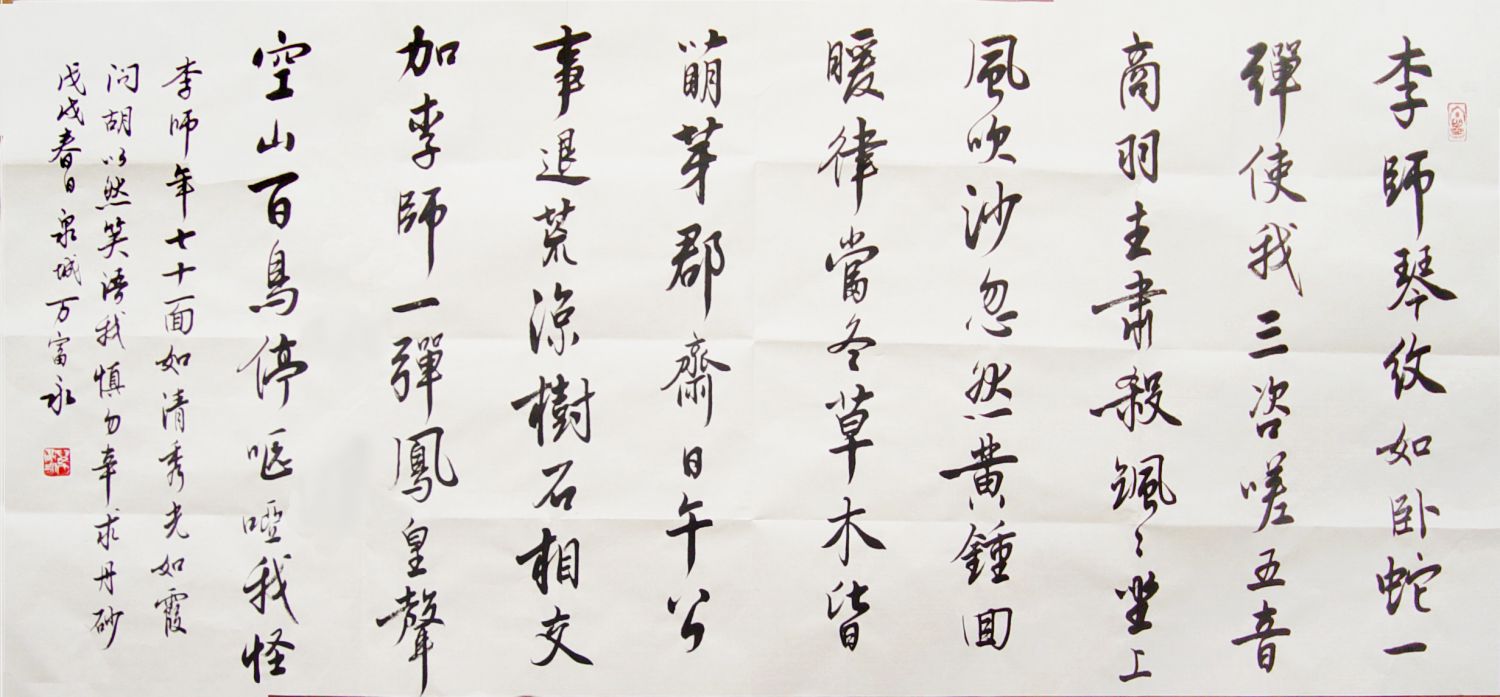 李師琴紋如卧蛇一
彈使我三咨嗟五音
商羽主肅殺颯〻坐上
風吹沙忽然黄鍾回
暖律當冬草木皆
萌芽郡齋日午公
事退荒涼樹石相交
加李師一彈鳳皇聲
空山百鳥停嘔啞我怪
李師年七十面如清秀光如霞
问胡以然笑語我慎勿辛求丹砂
戊戌春日泉城万富永